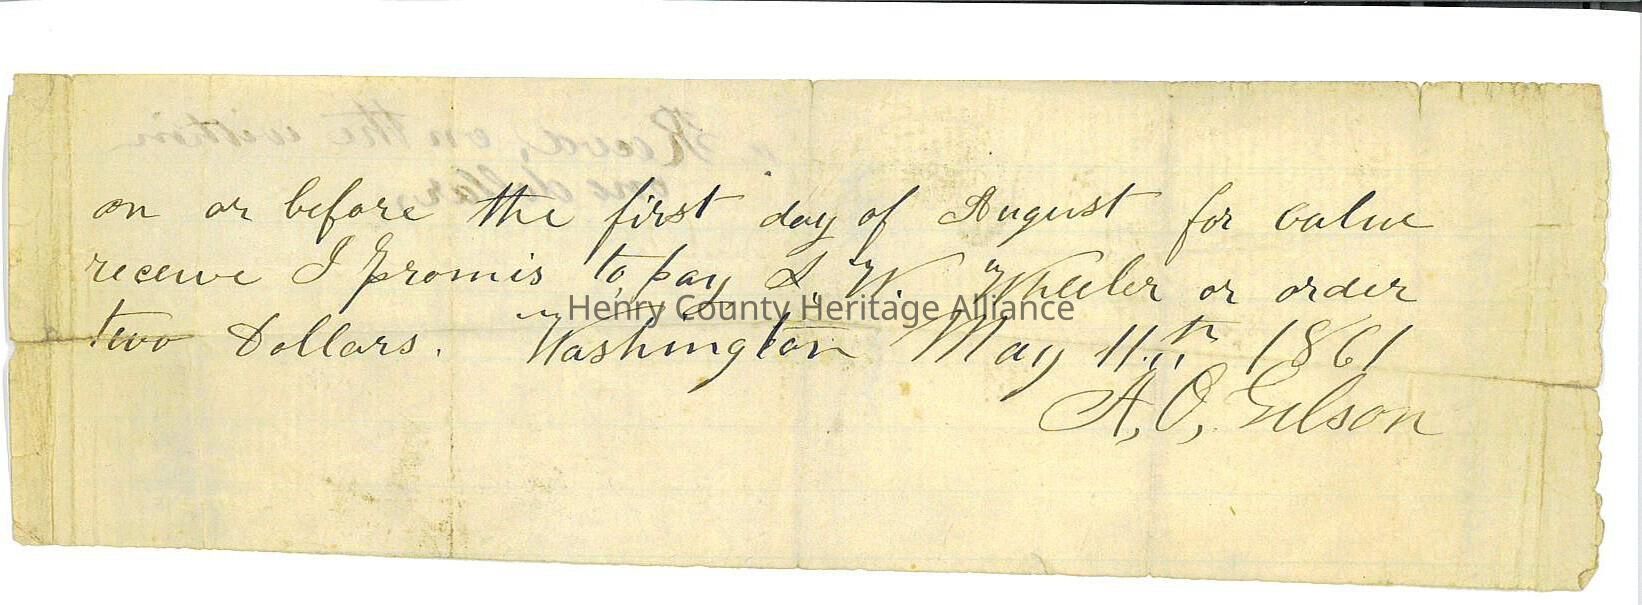 on or before the first day of August for value
receive I promis to pay S. W. Wheeler or order
Henry County Heritage Alliance
two Dollars. Washington May 11th 1861
A, O, Gilson